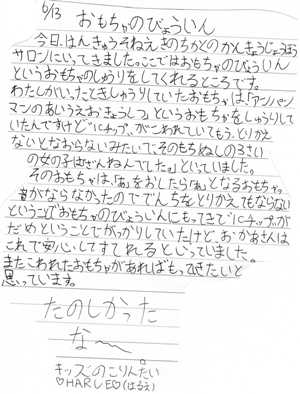 6/13
おもちゃのびょういん
今日、はんきゅうそねえきのちかとのかんきょうじょうほう
サロンにいってきました。ここではおもちゃのびょういん
というおもちゃのしゅりをしてくれるところです。
わたしがいったときしゅうりしていたおもちゃは「アンパン
マンのあいうえおきょうしつ」というおもちゃをしゅうりして
いたんですけど"にチップ"がこわれていてもう、とりかえ
ないとなおらないみたいで、そのもちぬしの3さい
の女の子は「ざんねんでした。」といっていました。
そのおもちゃは、「あ」をおしたら「あ」となるおもちゃで
音がならなかったのででんちをとりかえてもならない
ということでおもちゃのびょういんにもってきて"にチップ"が
だめということでがっかりしていたけど、おかあさんは
これで安心してすてれるといっていました。
またこわれたおもちゃがあればもってきたいと
思っています。
たのしかった
な〜。
キッズのこりんたい
♡HARUE♡(はるえ)